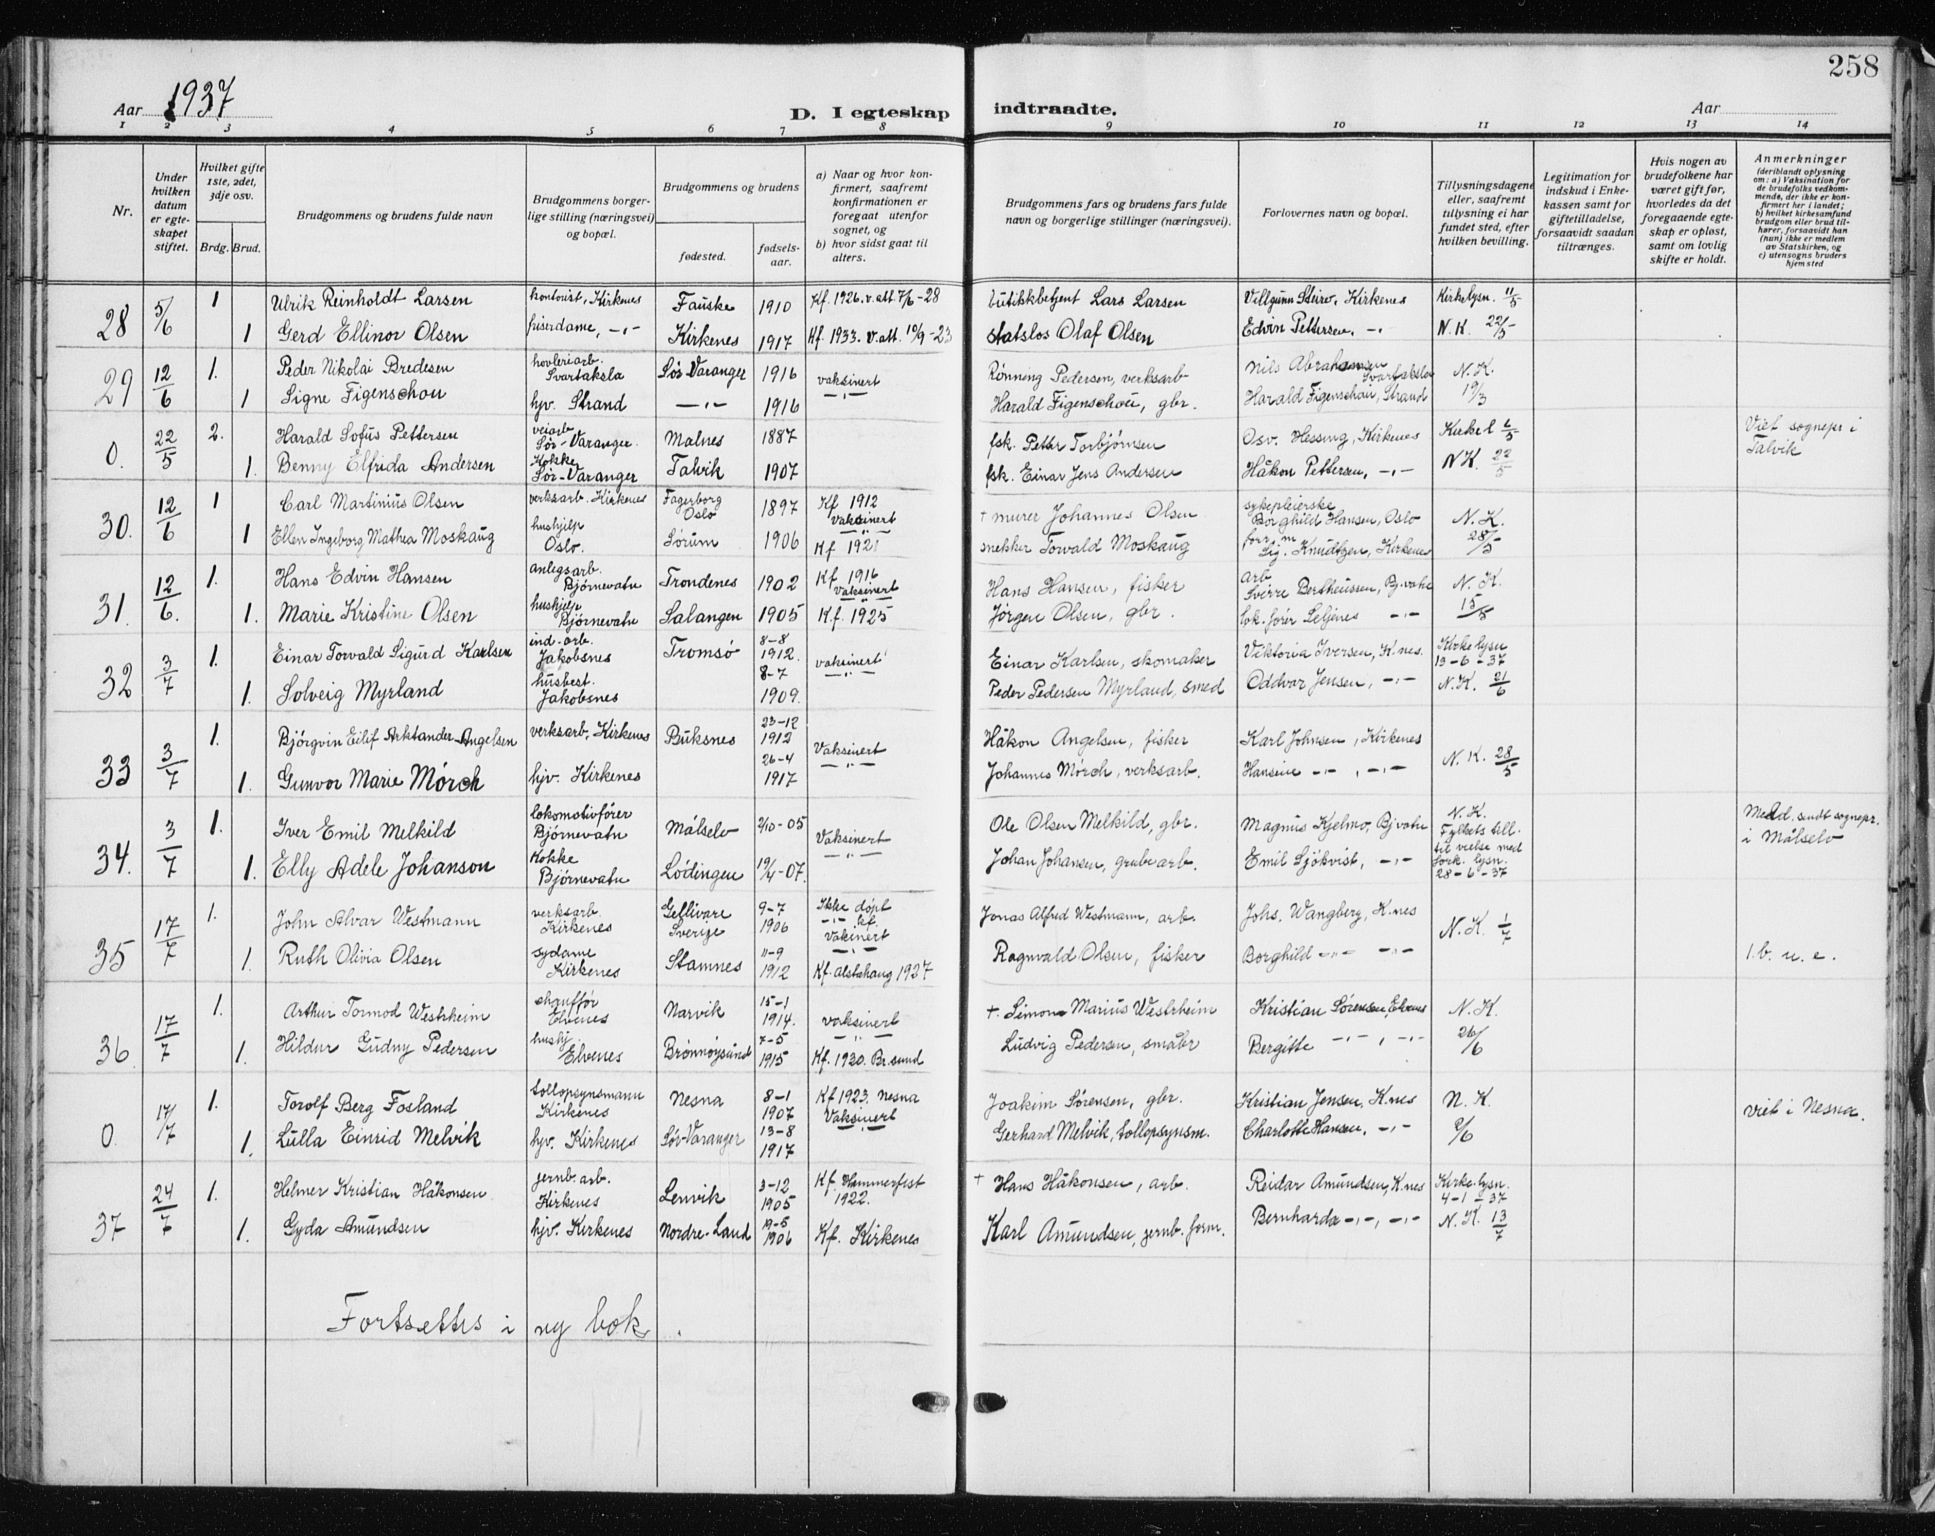 258
Aar 1937
D. I egteskap indtraadte.
Aar
1 2 3 4 5 6 7 8 9 10 11 12 13 14
Nr.
Under hvilken datum er egteskapet stiftet.
Hvilket gifte 1ste, 2det, 3dje osv.
Brdg. Brud.
Brudgommens og brudens fulde navn
Brudgommens borgerlige stilling (næringsvei) og bopæl.
Brudgommens og brudens
fødested.
fødselsaar.
a) Naar og hvor konfirmert, saafremt konfirmationen er foregaat utenfor sognet, og
b) hvor sidst gaat til alters.
Brudgommens fars og brudens fars fulde navn og borgerlige stillinger (næringsvei).
Forlovernes navn og bopæl.
Tillysningsdagene eller, saafremt tillysning ei har fundet sted, efter hvilken bevilling.
Legitimation for indskud i Enkekassen samt for giftetilladelse, forsaavidt saadan tiltrænges.
Hvis nogen av brudefolkene har været gift før, hvorledes da det foregaaende egteskap er opløst, samt om lovlig skifte er holdt.
Anmerkninger (deriblandt oplysning om: a) Vaksination for de brudefolks vedkommende, der ikke er konfirmert her i landet; b) hvilket kirkesamfund brudgom eller brud tilhører, forsaavidt han (hun) ikke er medlem av Statskirken, og c) utensogns bruders hjemsted
28 5/6 1 Ulrik Reinholdt Larsen kontorist, Kirkenes Fauske 1910 Kf. 1926. v. att. 7/6-28 butikkbetjent Lars Larsen Villgunn Steiro, Kirkenes Kirkelysn. 11/5
1 Gerd Ellinor Olsen friserdame, -,- Kirkenes 1917 Kf. 1933. v. att. 10/9-23 statslos Olaf Olsen Edvin Pettersen, -,- N.K. 22/5
29 12/6 1. Peder Nikolai Bredesen hovleriarb. Svartaksla Sør-Varanger 1916 vaksinert Rönning Pedersen, verksarb Nils Abrahamsen Svartaksla N.K.
1 Signe Figenschou hjv. Strand -,,- 1916 -,,- Harald Figenschou, gbr. Harald Figenschou, Strand 19/3
0. 22/5 2. Harald Sofus Pettersen veiarb. Sør-Varanger. Malnes 1887 fsk. Petter Torbjørnsen Osv. Hessing, Kirkenes Kirkel 2/5 Viet sognepr i Talvik
1. Benny Elfrida Andersen Kokke Sør-Varanger Talvik 1907 fsk. Einar Jens Andersen Håkon Pettersen, -,- N.K. 22/5
30. 12/6 1 Carl Martinius Olsen verksarb. Kirkenes Fagerborg Oslo 1897 Kf 1912 Vaksinert † murer Johannes Olsen sykepleierske Borghild Hansen, Oslo N.K.
1 Ellen Ingeborg Mathea Moskaug hushjelp Oslo. Sørum 1906 Kf 1921 snekker Torvald Moskaug Sig. Knudtzen, Kirkenes 28/5
31. 12/6. 1. Hans Edvin Hansen anlegsarb. Bjørnevatn Trondenes 1902 Kf. 1916 Vaksinert Hans Hansen, fisker arb Sverre Bertheussen, Bj.vatn N.K.
1. Marie Kristine Olsen hushjelp Bjørnevatn Salangen 1905 Kf. 1925 Jørgen Olsen, gbr. lok. fører Seljenes -,- 15/5
32 3/7 1. Einar Torvald Sigurd Karlsen ind. arb. Jakobsnes Tromsø 8-8 1912. vaksinert Einar Karlsen, skomaker Viktoria Iversen, K.nes. Kirkelysn 13-6-37
1. Solveig Myrland husbest. Jakobsnes 8-7 1909. -,,- Peder Pedersen Myrland, smed Oddvar Jensen, -,- N.K. 21/6
33 3/7 1. Bjørgvin Eilif Arktander Angelsen verksarb, Kirkenes Buksnes 23-12 1912 Vaksinert Håkon Angelsen, fisker Karl Johnsen, Kirkenes N.K. 28/5
1. Gunvor Marie Mörch hjv. Kirkenes 26-4 1917 -,,- Johannes Mörch, verksarb. Hansine -,- , -,-
34. 3/7 1. Iver Emil Melkild lokomotivfører Bjørnevatn Målselv 2/10-05 Vaksinert Ole Olsen Melkild, gbr. Magnus Kjelmo, Bj.vatn N.K. Fylkets till. til vielse med fork. lysn. 28-6-37 Medd. sendt sognepr. i Målselv
1. Elly Adele Johanson Kokke Bjørnevatn Lödingen 19/4-07. -,,- Johan Johansen, grubearb. Emil Sjökvist, -,-
35 17/7 1. John Alvar Westmann verksarb. Kirkenes Gellivare Sverige 9-7 1906 Ikke döpt -,,- kf. Vaksinert Jonas Alfred Westmann, arb. Johs. Wangberg, K.nes N.K. 1/7
1. Ruth Olivia Olsen sydame Kirkenes Stamnes 11-9 1912 Kf. Alstahaug 1927 Ragnvald Olsen, fisker Borghild -,,- -,- 1. b. u. e.
36 17/7 1. Arthur Tormod Westrheim chauffør Elvenes Narvik 15-1 1914. vaksinert † Simon Marius Westrheim Kristian Sørensen, Elvenes N.K.
1. Hildur Gudny Pedersen hushj. Elvenes Brönnöysund 7-5 1915 Kf. 1920. Br.sund Ludvig Pedersen, småbr Bergitte -,- , -,- 26/6
0. 17/7 1. Torolf Berg Fosland tollopsynsmann Kirkenes Nesna 8-1 1907 Kf 1923. Nesna Vaksinert Joakim Sørensen, gbr. Kristian Jensen, K.nes N.K. viet i Nesna.
1. Lulla Einrid Melvik hjv. Kirkenes Sør-Varanger 13-8 1917 Gerhard Melvik, tollopsynsm. Charlotte Hansen, -,-
37 24/7 1. Helmer Kristian Håkonsen jernb. arb. Kirkenes Lenvik 3-12 1905 Kf. Hammerfest 1922. † Hans Håkonsen, arb. Reidar Amundsen, K.nes Kirkelysn. 4-1-37
1. Gyda Amundsen hjv. Kirkenes Nordre-Land 19-5 1906 Kf. Kirkenes Karl Amundsen, jernb. form. Bernharda -,- , -,- N.K. 13/7
Fortsettes i ny bok.